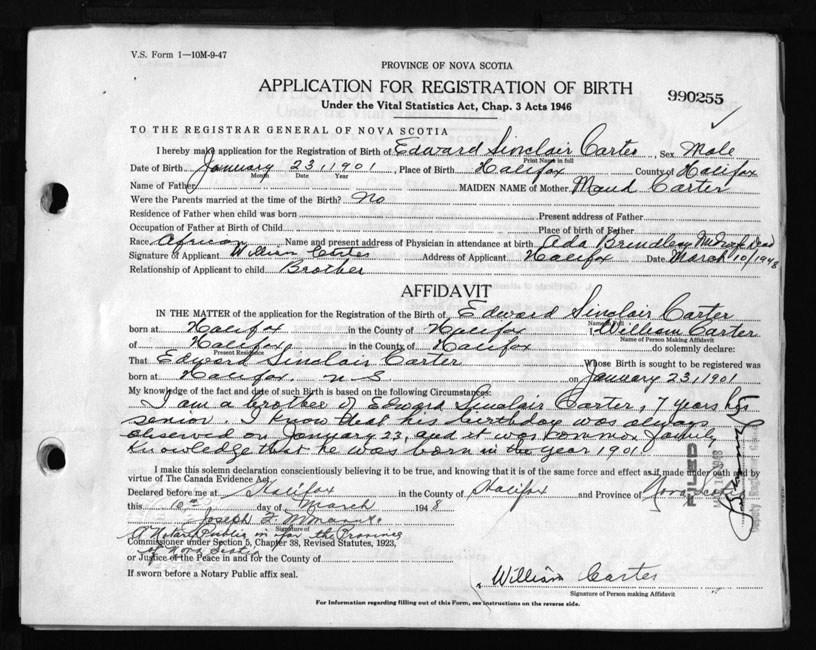 V.S. Form 1—10M-9-47
PROVINCE OF NOVA SCOTIA
APPLICATION FOR REGISTRATION OF BIRTH
990255
Under the Vital Statistics Act, Chap. 3 Acts 1946
TO THE REGISTRAR GENERAL OF NOVA SCOTIA
I hereby make application for the Registration of Birth of Edward Sinclair Carter, Sex Male
Print Name in full
Date of Birth January 23, 1901, Place of Birth Halifax County of Halifax
Month Date Year
Name of Father MAIDEN NAME of Mother Maud Carter
Were the Parents married at the time of the Birth? No
Residence of Father when child was born Present address of Father
Occupation of Father at Birth of Child Place of birth of Father
Race African Name and present address of Physician in attendance at birth Ada Brindley Midwife Dead
Signature of Applicant William Carter Address of Applicant Halifax Date March 10/1948
Relationship of Applicant to child Brother
AFFIDAVIT
IN THE MATTER of the application for the Registration of Birth of Edward Sinclair Carter
Name in Full
born at Halifax in the County of Halifax I, William Carter
Name of Person Making Affidavit
of Halifax in the County of Halifax do solemnly declare:
Present Residence
That Edward Sinclair Carter Whose Birth is sought to be registered was
born at Halifax, N S on January 23, 1901
My knowledge of the fact and date of such Birth is based on the following Circumstances:
I am a brother of Edward Sinclair Carter, 7 years his
senior. I know that his birthday was always
observed on January 23, and it was common family
knowledge that he was born in the year 1901
FILED
1948
I make this solemn declaration conscientiously believing it to be true, and knowing that it is of the same force and effect as if made under oath and by
virtue of The Canada Evidence Act.
Declared before me at Halifax in the County of Halifax and Province of Nova Scotia
this 10th day of March 1948
Joseph
Signature of
A Notary Public in & for the Province
Commissioner under Section 5, Chapter 38, Revised Statutes, 1923,
of Nova Scotia
or Justice of the Peace in and for the County of
If sworn before a Notary Public affix seal.
William Carter
Signature of Person making Affidavit
For Information regarding filling out of this Form, see instructions on the reverse side.